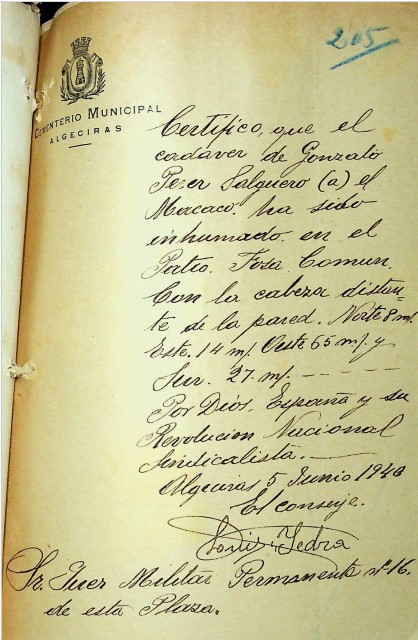 205
CEMENTERIO MUNICIPAL
ALGECIRAS
Certifico, que el
cadaver de Gonzalo
Perez Salguero (a) el
Macaco. ha sido
inhumado. en el
Patio. Fosa Comun.
Con la cabeza distan=
te de la pared. Norte 8 m/.
Este. 14 m/. Oeste 65 m/. y
Sur. 27. m/. - - - - -
Por Dios. España y su
Revolucion Nacional
Sindicalista. —
Algeciras 5 Junio 1940
El conseje.
Yedra
Sr. Juez Militar Permanente nº 16.
de esta Plaza.